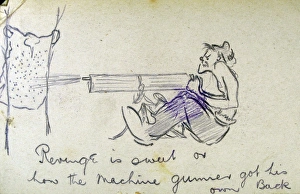 Revenge is sweet or
how the Machine gunner got his
own Back